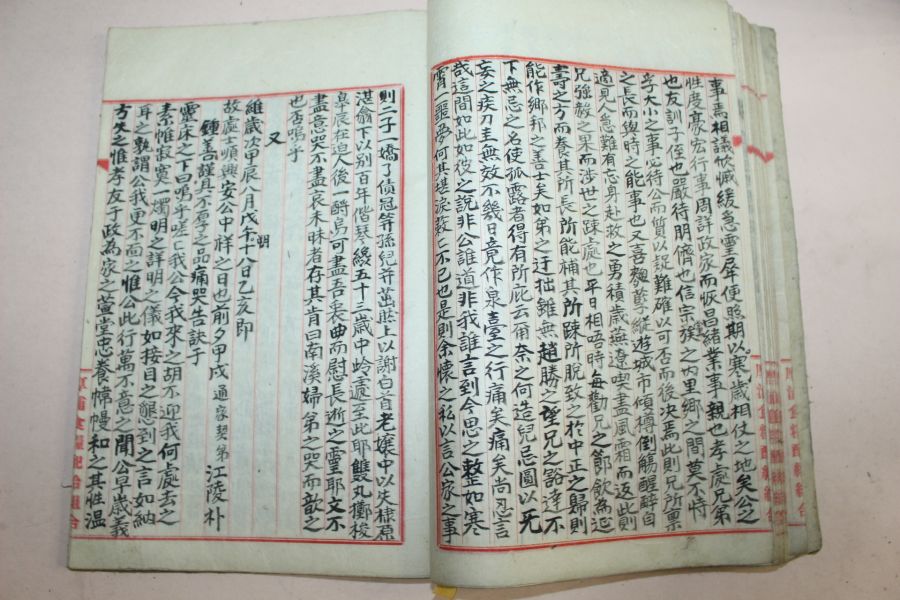 事焉相議忺慽緩急靈犀便照期以寒歲相仗之地矣公之
性度豪宏行事周詳政家而恢昌緒業事親也孝處兄弟
也友訓子侄也嚴待門儕也信宗族之內里鄉之間莫不恃
乎大小之事必待公而質以疑難確以可否而後決焉此則兄所禀
之長而與時之能事也又喜麴糵縱遊城市傾樽倒觴醒醉自
適見人急難有忘身赴救之勇積歲燕遼喫盡風霜而返此則
兄強毅之果而涉世之踈處也平日相唔時每勸兄之節飮爲延
壽之方而養其所長所能補其所踈所脫致之於中正之歸則
能作鄉邦之善士矣如弟之迂拙雖無趙勝之望兄之豁達不
下無忌之名使孤露者得有所庇云爾奈之何造兒忌圓以死
妄之疾刀圭無效不幾日竟作泉臺之行痛矣痛矣尚忍言
哉這間如此如彼之說非公誰道非我誰言到今思之整如寒
霄一噩夢何其堪淚數亡不已也是則余懷之私以言公家之事
則二子一嬌了債冠笄孫兒并茁庭上以謝白首老孃中失棣原
湛翕下以別百年偕琴纔五十三歲中岭處至此耶雙丸擲梭
皐辰在迫人後一酹烏可盡吾衷曲而慰長逝之靈耶文不
盡意哭不盡哀未昧者存其肯曰南溪婦弟之哭而歆之
也否嗚乎
又
維歲次甲辰八月戊午朔十八日乙亥即
故處士順興安公中祥之日也前夕甲戌 通家契弟 江陵 朴
鍾善謹具不腆之品痛哭告訣于
靈床之下曰嗚乎嗟亡我公今我來之胡不迎我何處去之
素惟寂寞一燭明之詳明之儀如接目之懇到之言如納
耳之孰謂公我更不面之惟公此行萬不意之聞公早歲義
方失之惟孝友于政爲家之萱堂忠養幃幔和之其性溫